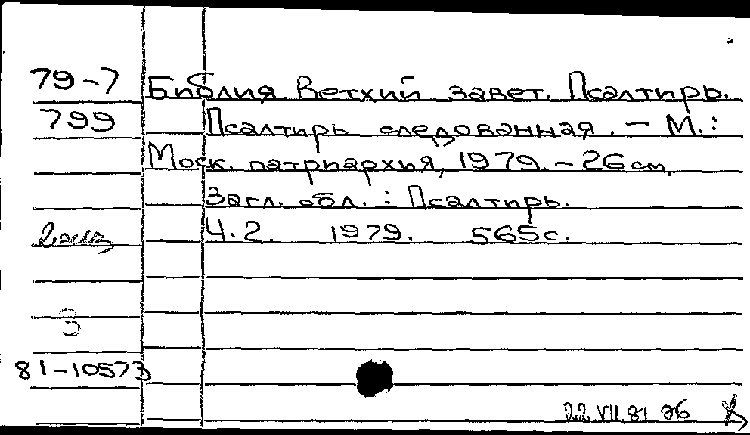 79-7 Библия Ветхий завет. Псалтирь.
799 Псалтирь следованная. - М.:
Моск. патриархия, 1979. - 26 см.
Загл. обл.: Псалтирь.
2 экз Ч.2. 1979. 565 с.
3
81-10573
22 VII 81